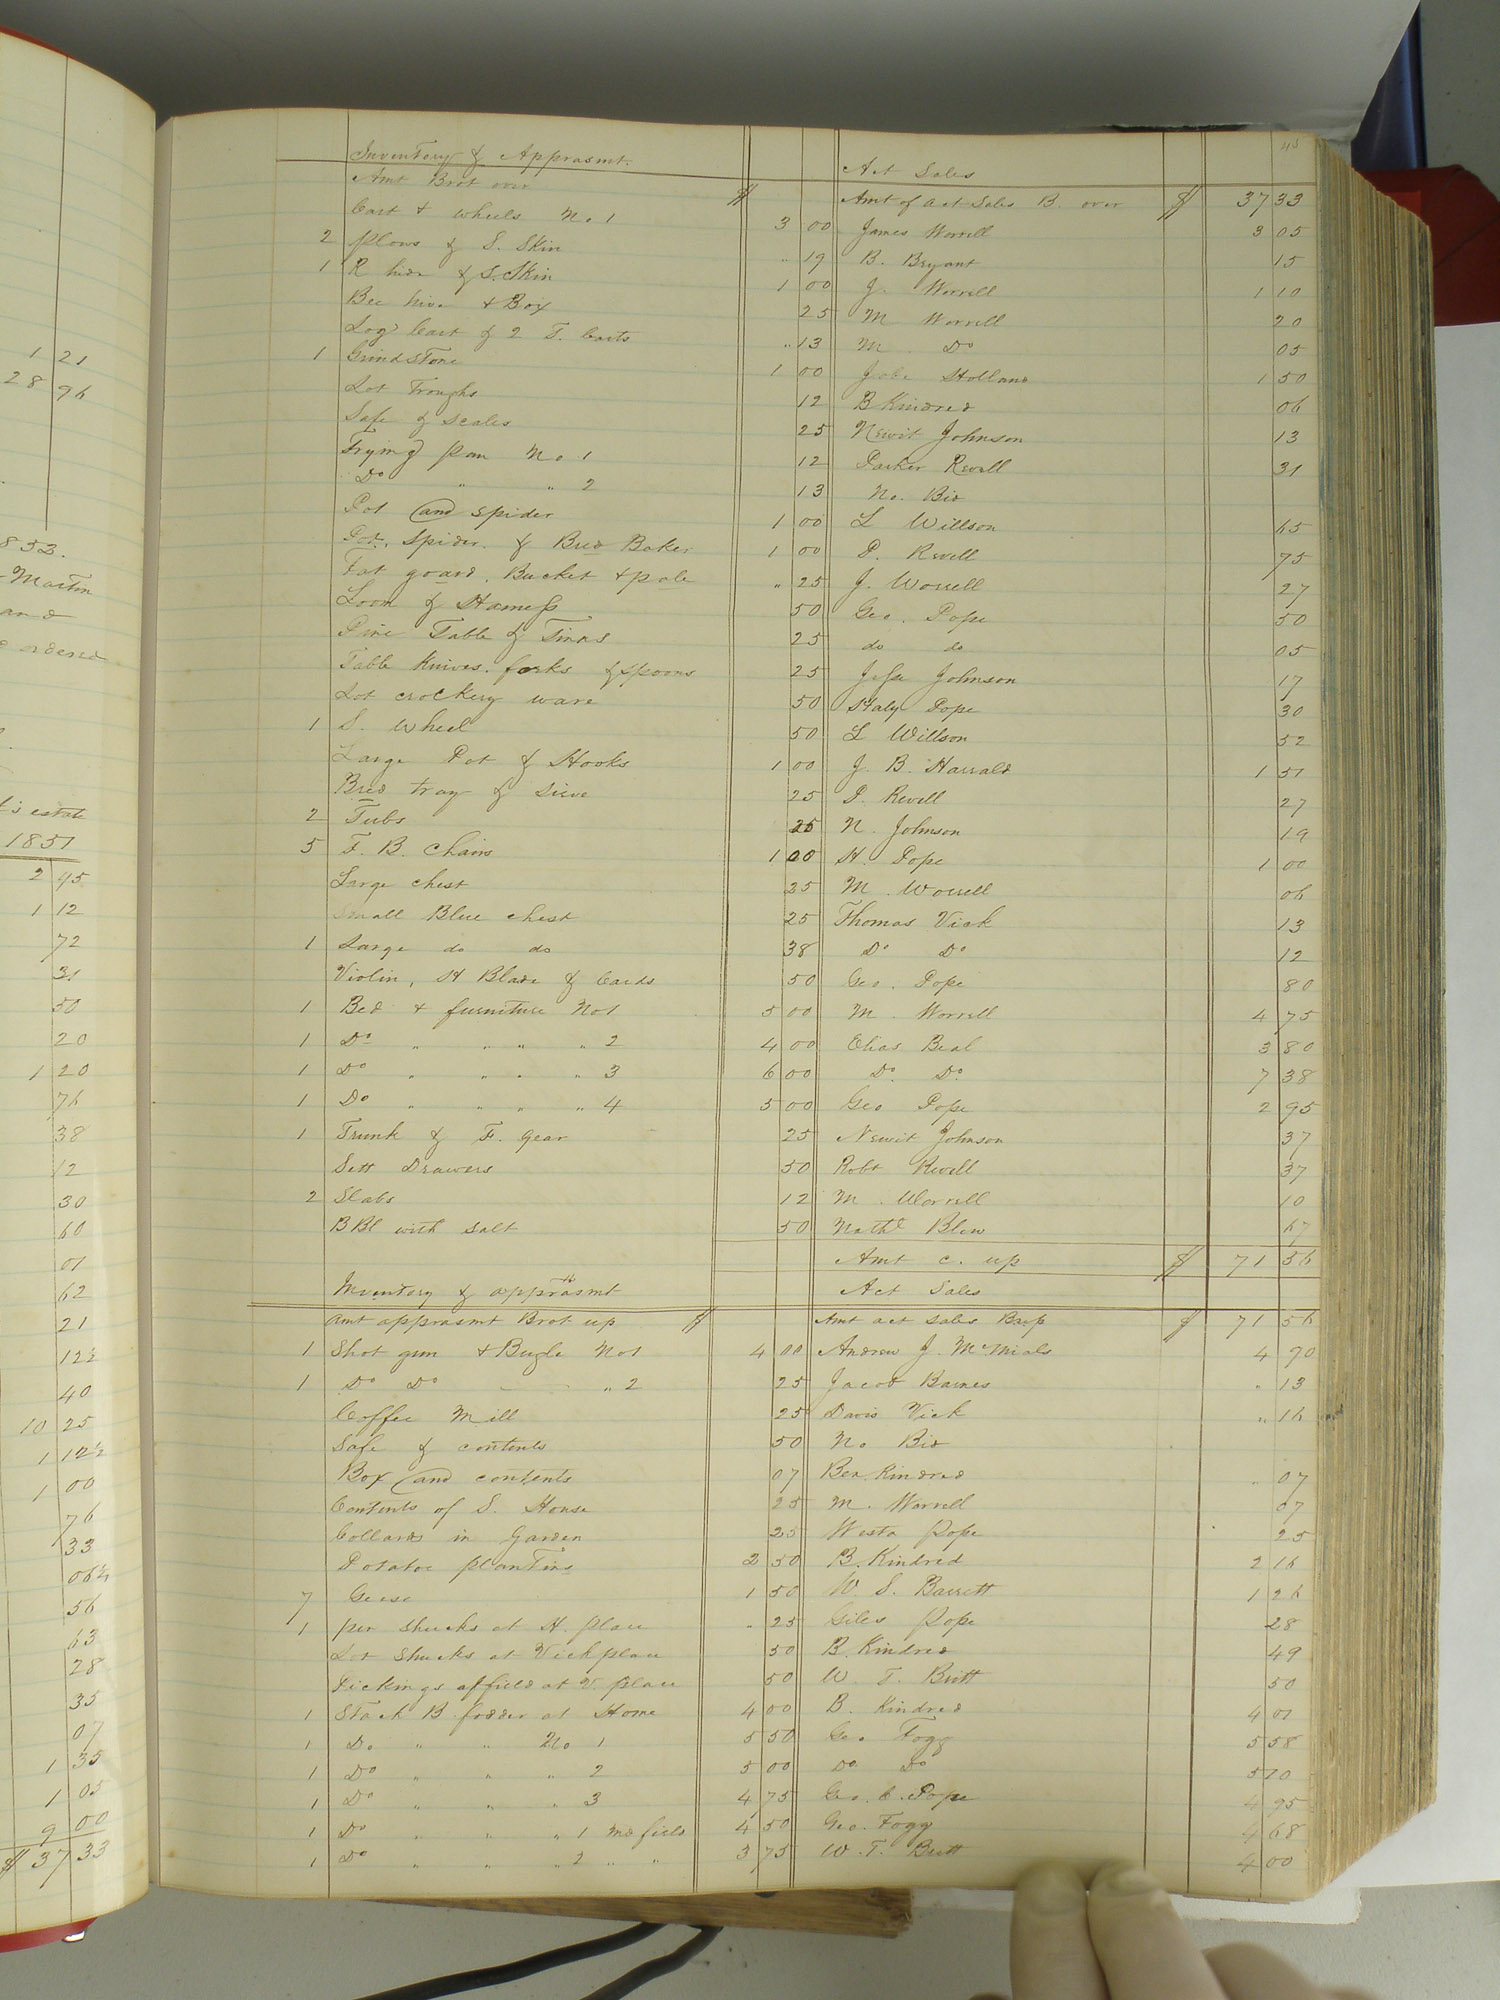 1 21
28 76
853.
Martin
and
ordered
's estate
1851
2 45
1 12
72
31
50
20
1 20
76
38
12
30
60
01
62
21
12½
40
10 25
1 12½
1 00
76
33
06¼
56
63
28
35
07
1 35
1 05
9 00
$ 37 33
45
Inventory & Apprasmt. Act Sales
Amt Brot over $ Amt of act Sales B. over $ 37 33
Cart & wheels No 1 3 00 James Worrell 3 05
2 Plows & S. Skin " 19 B. Bryant 15
1 R hide & S. Skin 1 00 J. Worrell 1 10
Bee hive & Box 25 M Worrell 20
Log Cart & 2 T. Carts " 13 M. Do 05
1 Grindstone 1 00 Jobe Holland 1 50
Lot Troughs 12 B Kindred 06
Safe & Scales 25 Newit Johnson 13
Frying Pan No 1 12 Parker Revell 31
Do " " 2 13 No. Bid
Pot and spider 1 00 L Willson 65
Pot, Spider & Bred Baker 1 00 P. Revell 75
Fat goard, Bucket & pale " 25 J. Worrell 27
Loom & Harness 50 Geo. Pope 50
Pine Table & Tinas 25 do do 05
Table Knives. forks & spoons 25 Jesse Johnson 17
Lot crockery ware 50 Staly Pope 30
1 S. Wheel 50 L Willson 52
Large Pot & Hooks 1 00 J. B. Harrald 1 51
Bred tray & Sieve 25 P. Revell 27
2 Tubs 25 N. Johnson 19
5 F. B. Chairs 1 00 H. Pope 1 00
Large chest 25 M. Worrell 06
Small Blue chest 25 Thomas Vick 13
1 Large do do 38 Do Do 12
Violin, H Blade & Cards 50 Geo. Pope 80
1 Bed & furniture No 1 5 00 M. Worrell 4 75
1 Do " " " " 2 4 00 Elias Beal 3 80
1 Do " " " " 3 6 00 Do. Do. 7 38
1 Do " " " " 4 5 00 Geo Pope 2 95
1 Trunk & F. gear 25 Newit Johnson 37
Sett Drawers 50 Robt Revell 37
2 Slabs 12 M. Worrell 10
BBl with salt 50 Nathl Blow 67
Amt c. up $ 71 56
Inventory & apprasmt Act Sales
Amt apprasmt Brot up $ Amt act sales B up $ 71 56
1 Shot gun & Bugle No 1 4 00 Andrew J. McMials 4 90
1 Do Do " 2 25 Jacob Barnes " 13
Coffee Mill 25 Davis Vick " 16
Safe & contents 50 No Bid
Box and contents 07 Ben Kindred " 07
Contents of S. House 25 M. Worrell 07
Collards in Garden 25 Weste Pope 25
Potatoe plantins 2 50 B. Kindred 2 16
7 Geese 1 50 W. S. Barrett 1 26
1 pen shucks at H. place " 25 Giles Pope 28
Lot Shucks at Vick place 50 B. Kindred 49
Pickings of field at V. place 50 W. T. Britt 50
1 Stack B. fodder at Home 4 00 B. Kindred 4 01
1 Do " " No 1 5 50 Geo Fogg 5 58
1 Do " " " 2 5 00 Do Do 5 10
1 Do " " " 3 4 75 Geo. C. Pope 4 95
1 Do " " " 1 md field 4 50 Geo. Fogg 4 68
1 Do " " " 2 " " 3 75 W. T. Britt 4 00